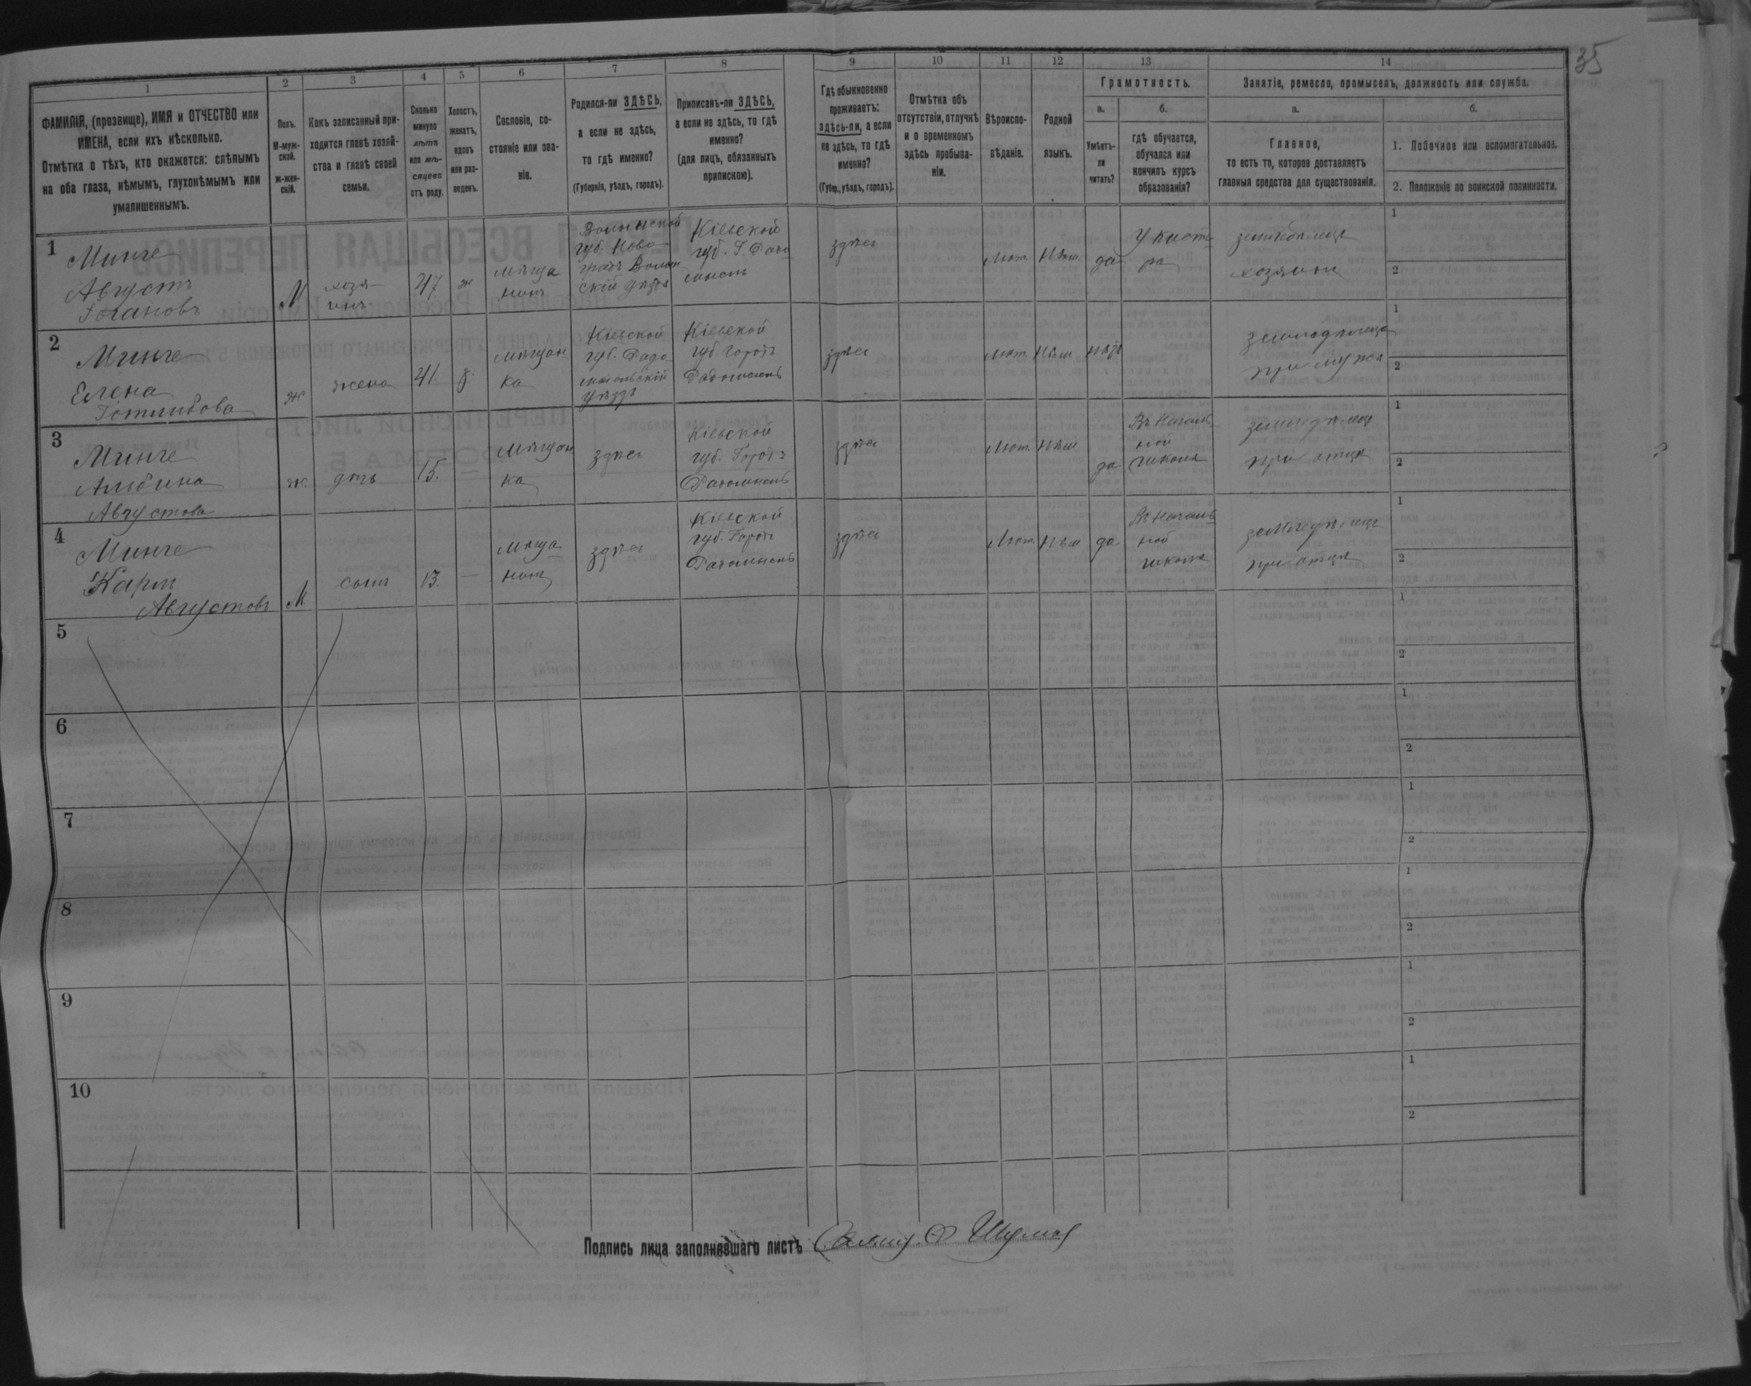 35
1
2
3
4
5
6
7
8
9
10
11
12
13
14
ФАМИЛІЯ, (прозвище), ИМЯ и ОТЧЕСТВО или
ИМЕНА, если ихъ нѣсколько.
Отмѣтка о тѣхъ, кто окажется: слѣпымъ
на оба глаза, нѣмымъ, глухонѣмымъ или
умалишеннымъ.
Полъ.
М-муж-
ской.
ж-жен-
скій.
Какъ записанный при-
ходится главѣ хозяй-
ства и главѣ своей
семьи.
Сколько
минуло
лѣтъ
или мѣ-
сяцевъ
отъ роду.
Холостъ,
женатъ,
вдовъ
или раз-
веденъ.
Сословіе, со-
стояніе или зва-
ніе.
Родился-ли ЗДѢСЬ,
а если не здѣсь,
то гдѣ именно?
(Губернія, уѣздъ, городъ).
Приписанъ-ли ЗДѢСЬ,
а если не здѣсь, то гдѣ
именно?
(для лицъ, обязанныхъ
припискою).
Гдѣ обыкновенно
проживаетъ:
здѣсь-ли, а если
не здѣсь, то гдѣ
именно?
(Губер., уѣздъ, городъ).
Отмѣтка объ
отсутствіи, отлучкѣ
и о временномъ
здѣсь пребыва-
ніи.
Вѣроиспо-
вѣданіе.
Родной
языкъ.
Грамотность.
а.
Умѣетъ-
ли
читать?
б.
гдѣ обучается,
обучался или
кончилъ курсъ
образованія?
Занятіе, ремесло, промыселъ, должность или служба.
а.
Главное,
то есть то, которое доставляетъ
главныя средства для существованія.
б.
1. Побочное или вспомогательное.
2. Положеніе по воинской повинности.
1
Минге
Августъ
М
хозя-
инъ
47
ж
мѣща
нинъ
Волынской
губ. Ново-
скій уѣздъ
Кіевской
губ.
здѣсь
Лют
Нѣм
да
хозяинъ
1
2
2
Минге
Елена
Готлибова
ж
жена
41
з.
мѣщан
ка
Кіевской
губ.
уѣздъ
Кіевской
губ. городъ
здѣсь
Лют
Нѣм
нѣтъ
при мужѣ
1
2
3
Минге
Альбина
Августова
ж
дчь
15.
—
Мѣщан
ка
здѣсь
Кіевской
губ. Городъ
здѣсь
Лют
Нѣм
да
Въ Началь
ной
школѣ
при отцѣ
1
2
4
Минге
Карлъ
Августовъ
М
сынъ
13.
—
Мѣща
нинъ
здѣсь
Кіевской
губ. Городъ
здѣсь
Лют
Нѣм
да
Въ Началь
ной
школѣ
при отцѣ
1
2
5
1
2
6
1
2
7
1
2
8
1
2
9
1
2
10
1
2
Подпись лица заполнявшаго листъ